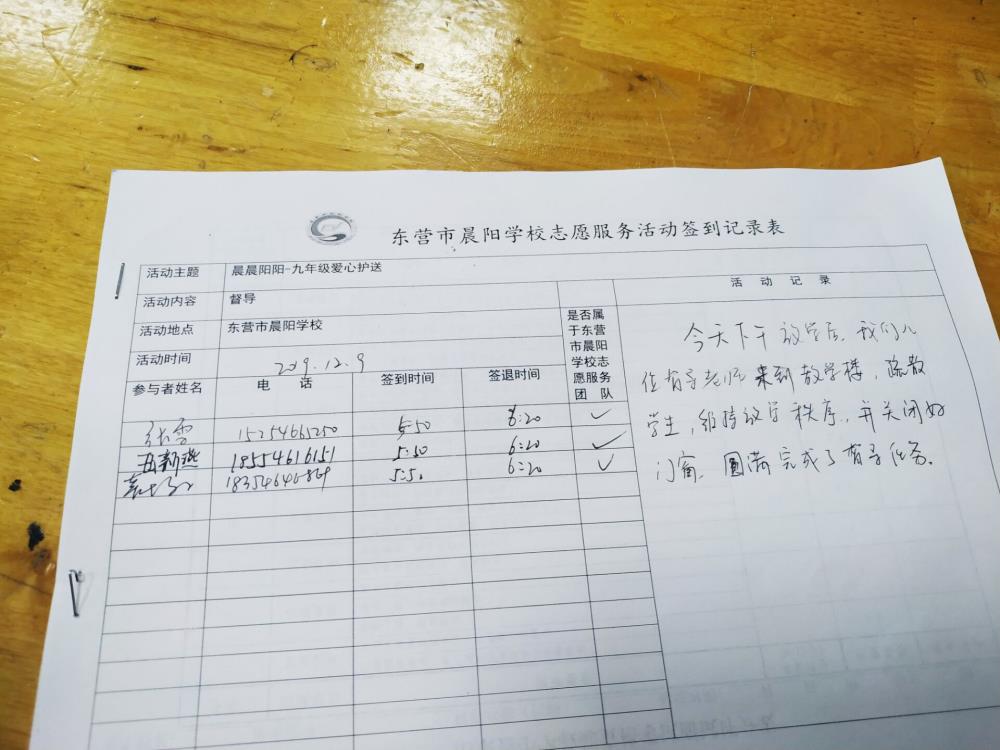 东营市晨阳学校志愿服务活动签到记录表
活动主题 晨晨阳阳-九年级爱心护送
活动内容 督导
活动地点 东营市晨阳学校
活动时间 2019.12.9
参与者姓名 电 话 签到时间 签退时间 是否属于东营市晨阳学校志愿服务团 队
张雪 15254665250 5:50 6:20 ✓
新燕 18554616151 5:50 6:20 ✓
5:50 6:20 ✓
活 动 记 录
今天下午放学后,我们几
位督导老师来到教学楼,疏散
学生,维持放学秩序,并关闭好
门窗,圆满完成了督导任务.